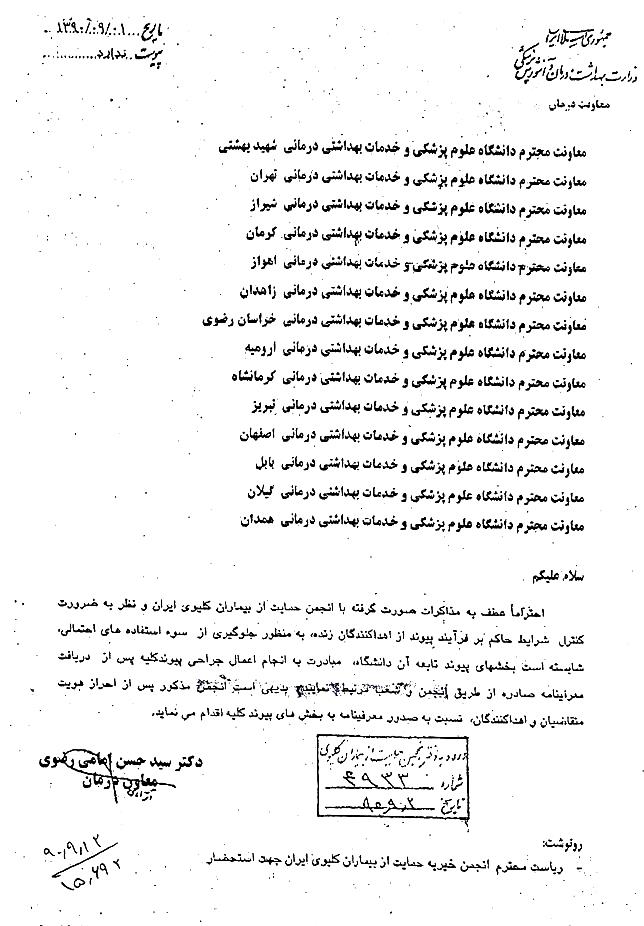 جمهوری اسلامی ایران
وزارت بهداشت، درمان و آموزش پزشکی
معاونت درمان
تاریخ ۱۳۹۰/۰۹/۰۱
پیوست ندارد
معاونت محترم دانشگاه علوم پزشکی و خدمات بهداشتی درمانی شهید بهشتی
معاونت محترم دانشگاه علوم پزشکی و خدمات بهداشتی درمانی تهران
معاونت محترم دانشگاه علوم پزشکی و خدمات بهداشتی درمانی شیراز
معاونت محترم دانشگاه علوم پزشکی و خدمات بهداشتی درمانی کرمان
معاونت محترم دانشگاه علوم پزشکی و خدمات بهداشتی درمانی اهواز
معاونت محترم دانشگاه علوم پزشکی و خدمات بهداشتی درمانی زاهدان
معاونت محترم دانشگاه علوم پزشکی و خدمات بهداشتی درمانی خراسان رضوی
معاونت محترم دانشگاه علوم پزشکی و خدمات بهداشتی درمانی ارومیه
معاونت محترم دانشگاه علوم پزشکی و خدمات بهداشتی درمانی کرمانشاه
معاونت محترم دانشگاه علوم پزشکی و خدمات بهداشتی درمانی تبریز
معاونت محترم دانشگاه علوم پزشکی و خدمات بهداشتی درمانی اصفهان
معاونت محترم دانشگاه علوم پزشکی و خدمات بهداشتی درمانی بابل
معاونت محترم دانشگاه علوم پزشکی و خدمات بهداشتی درمانی گیلان
معاونت محترم دانشگاه علوم پزشکی و خدمات بهداشتی درمانی همدان
سلام علیکم
احتراماً عطف به مذاکرات صورت گرفته با انجمن حمایت از بیماران کلیوی ایران و نظر به ضرورت
کنترل شرایط حاکم بر فرآیند پیوند از اهداکنندگان زنده، به منظور جلوگیری از سوء استفاده های احتمالی،
شایسته است بخشهای پیوند تابعه آن دانشگاه، مبادرت به انجام اعمال جراحی پیوندکلیه پس از دریافت
معرفینامه صادره از طریق انجمن و شعب مرتبط نمایند. بدیهی است انجمن مذکور پس از احراز هویت
متقاضیان و اهداکنندگان، نسبت به صدور معرفینامه به بخش های پیوند کلیه اقدام می نماید.
دکتر سید حسن امامی رضوی
معاون درمان
ورود به دفتر انجمن حمایت از بیماران کلیوی
شماره ۴۹۳۳
تاریخ
۹۰/۹/۱۲
۱۵۶۹۲
رونوشت:
- ریاست محترم انجمن خیریه حمایت از بیماران کلیوی ایران جهت استحضار